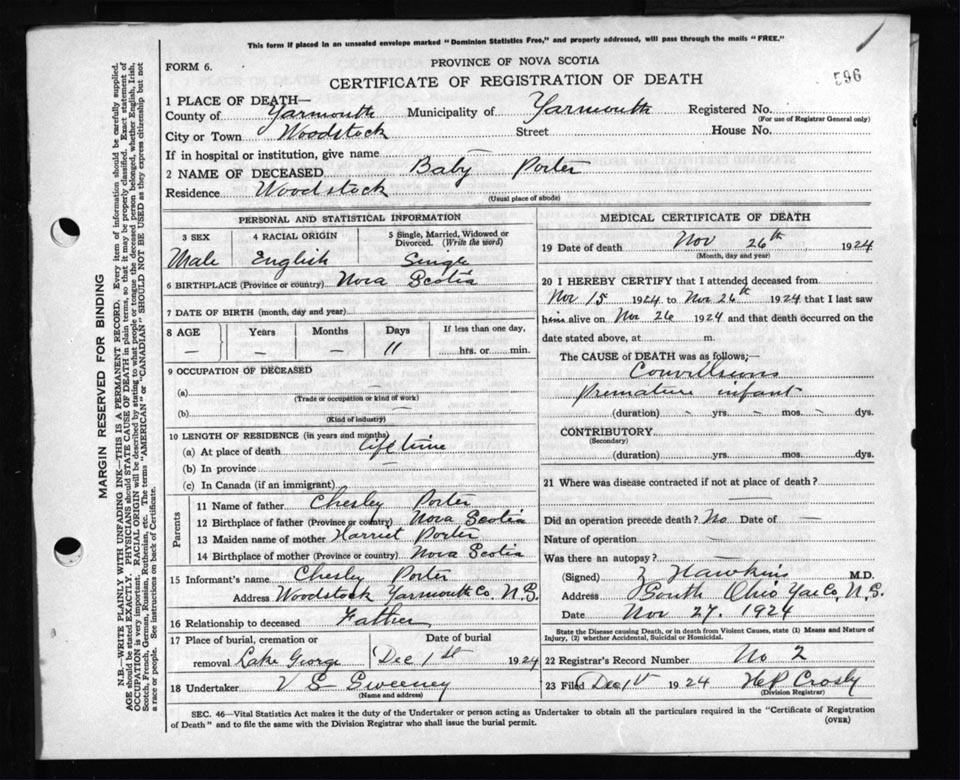 This form if placed in an unsealed envelope marked "Dominion Statistics Free," and properly addressed, will pass through the mails "FREE."
1
FORM 6.
PROVINCE OF NOVA SCOTIA
CERTIFICATE OF REGISTRATION OF DEATH
596
1 PLACE OF DEATH—
County of Yarmouth Municipality of Yarmouth Registered No.
(For use of Registrar General only)
City or Town Woodstock Street House No.
If in hospital or institution, give name —
2 NAME OF DECEASED Baby Porter
Residence Woodstock
(Usual place of abode)
PERSONAL AND STATISTICAL INFORMATION
3 SEX 4 RACIAL ORIGIN 5 Single, Married, Widowed or Divorced. (Write the word)
Male English Single
6 BIRTHPLACE (Province or country) Nova Scotia
7 DATE OF BIRTH (month, day and year)
8 AGE Years Months Days If less than one day,
— — — 11 hrs. or min.
9 OCCUPATION OF DECEASED
(a) —
(Trade or occupation or kind of work)
(b) —
(Kind of industry)
10 LENGTH OF RESIDENCE (in years and months)
(a) At place of death life time
(b) In province —
(c) In Canada (if an immigrant)
Parents
11 Name of father Chesley Porter
12 Birthplace of father (Province or country) Nova Scotia
13 Maiden name of mother Harriet Porter
14 Birthplace of mother (Province or country) Nova Scotia
15 Informant's name Chesley Porter
Address Woodstock Yarmouth Co. N.S.
16 Relationship to deceased Father
17 Place of burial, cremation or removal Lake George
Date of burial Dec 1st 1924
18 Undertaker V S Sweeney
(Name and address)
MEDICAL CERTIFICATE OF DEATH
19 Date of death Nov 26th 1924
(Month, day and year)
20 I HEREBY CERTIFY that I attended deceased from
Nov 15 1924 to Nov 26th 1924 that I last saw
him alive on Nov 26 1924 and that death occurred on the
date stated above, at m.
The CAUSE of DEATH was as follows;—
Convillsions
Premature infant
(duration) - yrs. - mos. - dys.
CONTRIBUTORY
(Secondary)
(duration) yrs. mos. dys.
21 Where was disease contracted if not at place of death?
—
Did an operation precede death? No Date of —
Nature of operation
Was there an autopsy? —
(Signed) Z Hawkins M.D.
Address South Ohio Yar Co, N.S.
Date Nov 27. 1924
State the Disease causing Death, or in death from Violent Causes, state (1) Means and Nature of
Injury, (2) whether Accidental, Suicidal or Homicidal.
22 Registrar's Record Number No 2
23 Filed Dec 1st 1924 H P Crosby
(Division Registrar)
SEC. 46—Vital Statistics Act makes it the duty of the Undertaker or person acting as Undertaker to obtain all the particulars required in the "Certificate of Registration
of Death" and to file the same with the Division Registrar who shall issue the burial permit.
(OVER)
MARGIN RESERVED FOR BINDING
N.B.—WRITE PLAINLY WITH UNFADING INK—THIS IS A PERMANENT RECORD. Every item of information should be carefully supplied.
AGE should be stated EXACTLY. PHYSICIANS should STATE CAUSE OF DEATH in plain terms, so that it may be properly classified. Exact statement of
OCCUPATION is very important. RACIAL ORIGIN will be described by stating to what people or tongue the deceased person belonged, whether English, Irish,
Scotch, French, German, Russian, Ruthenian, etc. The terms "AMERICAN" or "CANADIAN" SHOULD NOT BE USED as they express citizenship but not
a race or people. See instructions on back of Certificate.